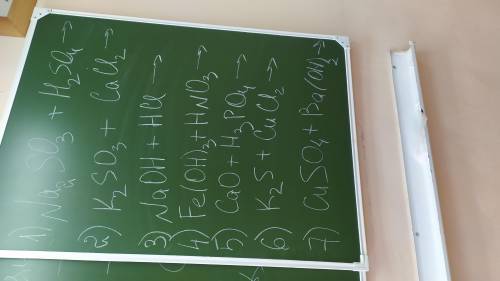 1) Na₂SO₃ + H₂SO₄ →
2) K₂SO₃ + CaCl₂ →
3) NaOH + HCl →
4) Fe(OH)₃ + HNO₃ →
5) CaO + H₃PO₄ →
6) K₂S + CuCl₂ →
7) CuSO₄ + Ba(OH)₂ →